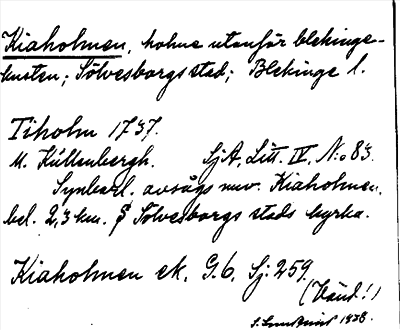 Kiaholmen, holme utanför blekinge-
kusten; Sölvesborgs stad; Blekinge l.
Tiholm 1737.
M. Küllenbergh. SjA, Litt. IV, N:o 83.
Synbarl. avsågs nuv. Kiaholmen,
bel. 2,3 km. S Sölvesborgs stads kyrka.
Kiaholmen ek. G.6. Sj: 259.
(Vänd!)
1938.